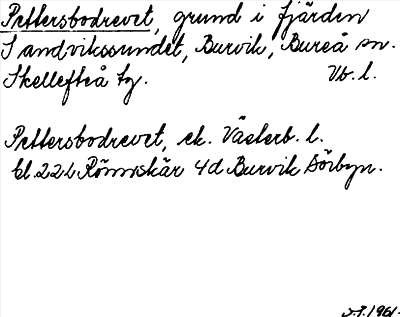 Pettersbodrevet, grund i fjärden
Sandvikssundet, Burvik, Bureå sn.
Skellefteå tg. Vb. l.
Pettersbodrevet, ek. Västerb. l.
bl. 22 L Rönnskär 4d Burvik Sörbyn.
J.J. 1961.